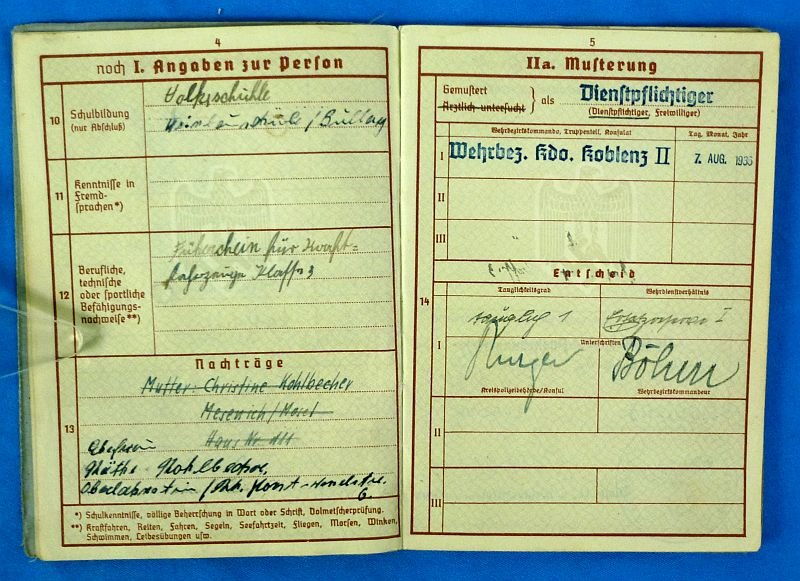 4
noch I. Angaben zur Person
10
Schulbildung
(nur Abschluß)
Volksschuhle
/ Bullay
11
Kenntnisse in
Fremd-
sprachen*)
12
Berufliche,
technische
oder sportliche
Befähigungs-
nachweise**)
Führerschein für Kraft-
fahrzeuge Klasse 3
Nachträge
13
Mutter: Christine Kohlbecher
Mesenich/Mosel
Haus Nr
Ehefrau
Käthe Kohlbecher
Oberlahnstein
6.
*) Schulkenntnisse, völlige Beherrschung in Wort oder Schrift, Dolmetscherprüfung.
**) Kraftfahren, Reiten, Fahren, Segeln, Seefahrtzeit, Fliegen, Morsen, Winken,
Schwimmen, Leibesübungen usw.
5
IIa. Musterung
Gemustert
Ärztlich untersucht
als
Dienstpflichtiger
(Dienstpflichtiger, Freiwilliger)
Wehrbezirkskommando, Truppenteil, Konsulat
Tag, Monat, Jahr
I
Wehrbez. Kdo. Koblenz II
7. AUG. 1936
II
III
Entscheid
14
Tauglichkeitsgrad
Wehrdienstverhältnis
tauglich 1
Ersatzreserve I
I
Unterschriften
Kreispolizeibehörde/Konsul
Wehrbezirkskommandeur
II
III